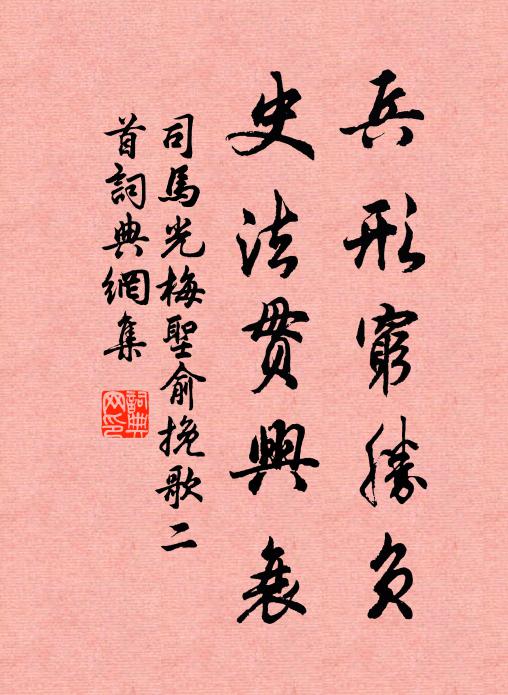 兵形窮勝負
史法貫興衰
司馬光梅聖俞挽歌二
首詞典網集
詞典
网印